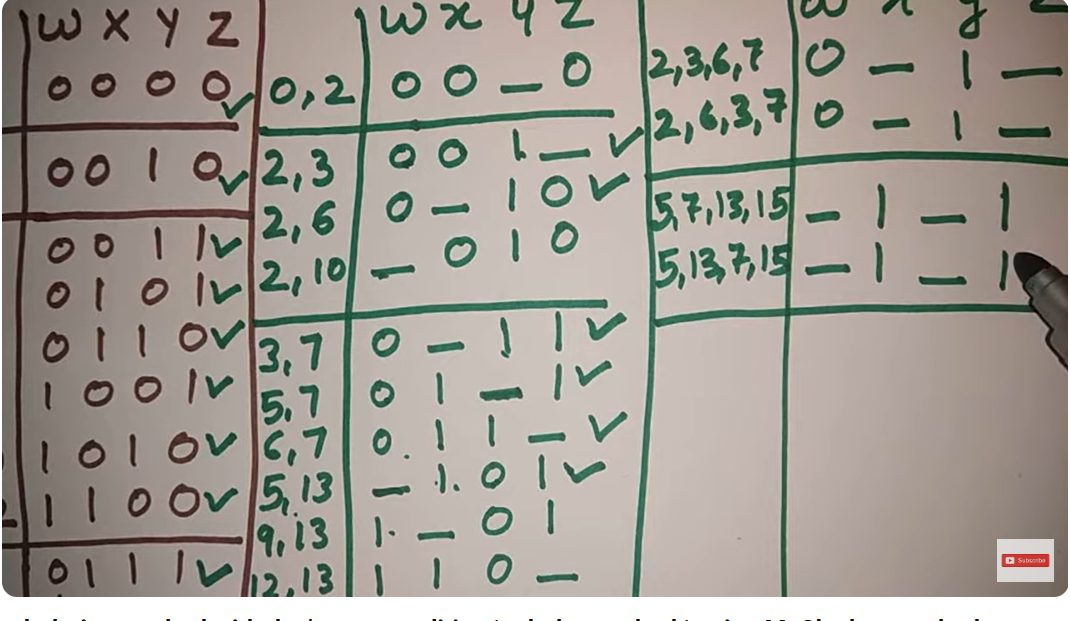 W X Y Z
0 0 0 0 ✓
0 0 1 0 ✓
0 0 1 1 ✓
0 1 0 1 ✓
0 1 1 0 ✓
1 0 0 1 ✓
1 0 1 0 ✓
1 1 0 0 ✓
0 1 1 1 ✓
W x y Z
0,2 0 0 _ 0
2,3 0 0 1 _ ✓
2,6 0 _ 1 0 ✓
2,10 _ 0 1 0
3,7 0 _ 1 1 ✓
5,7 0 1 _ 1 ✓
6,7 0 1 1 _ ✓
5,13 _ 1 0 1 ✓
9,13 1 _ 0 1
12,13 1 1 0 _
2,3,6,7 0 _ 1 _
2,6,3,7 0 _ 1 _
5,7,13,15 _ 1 _ 1
5,13,7,15 _ 1 _ 1
Subscribe